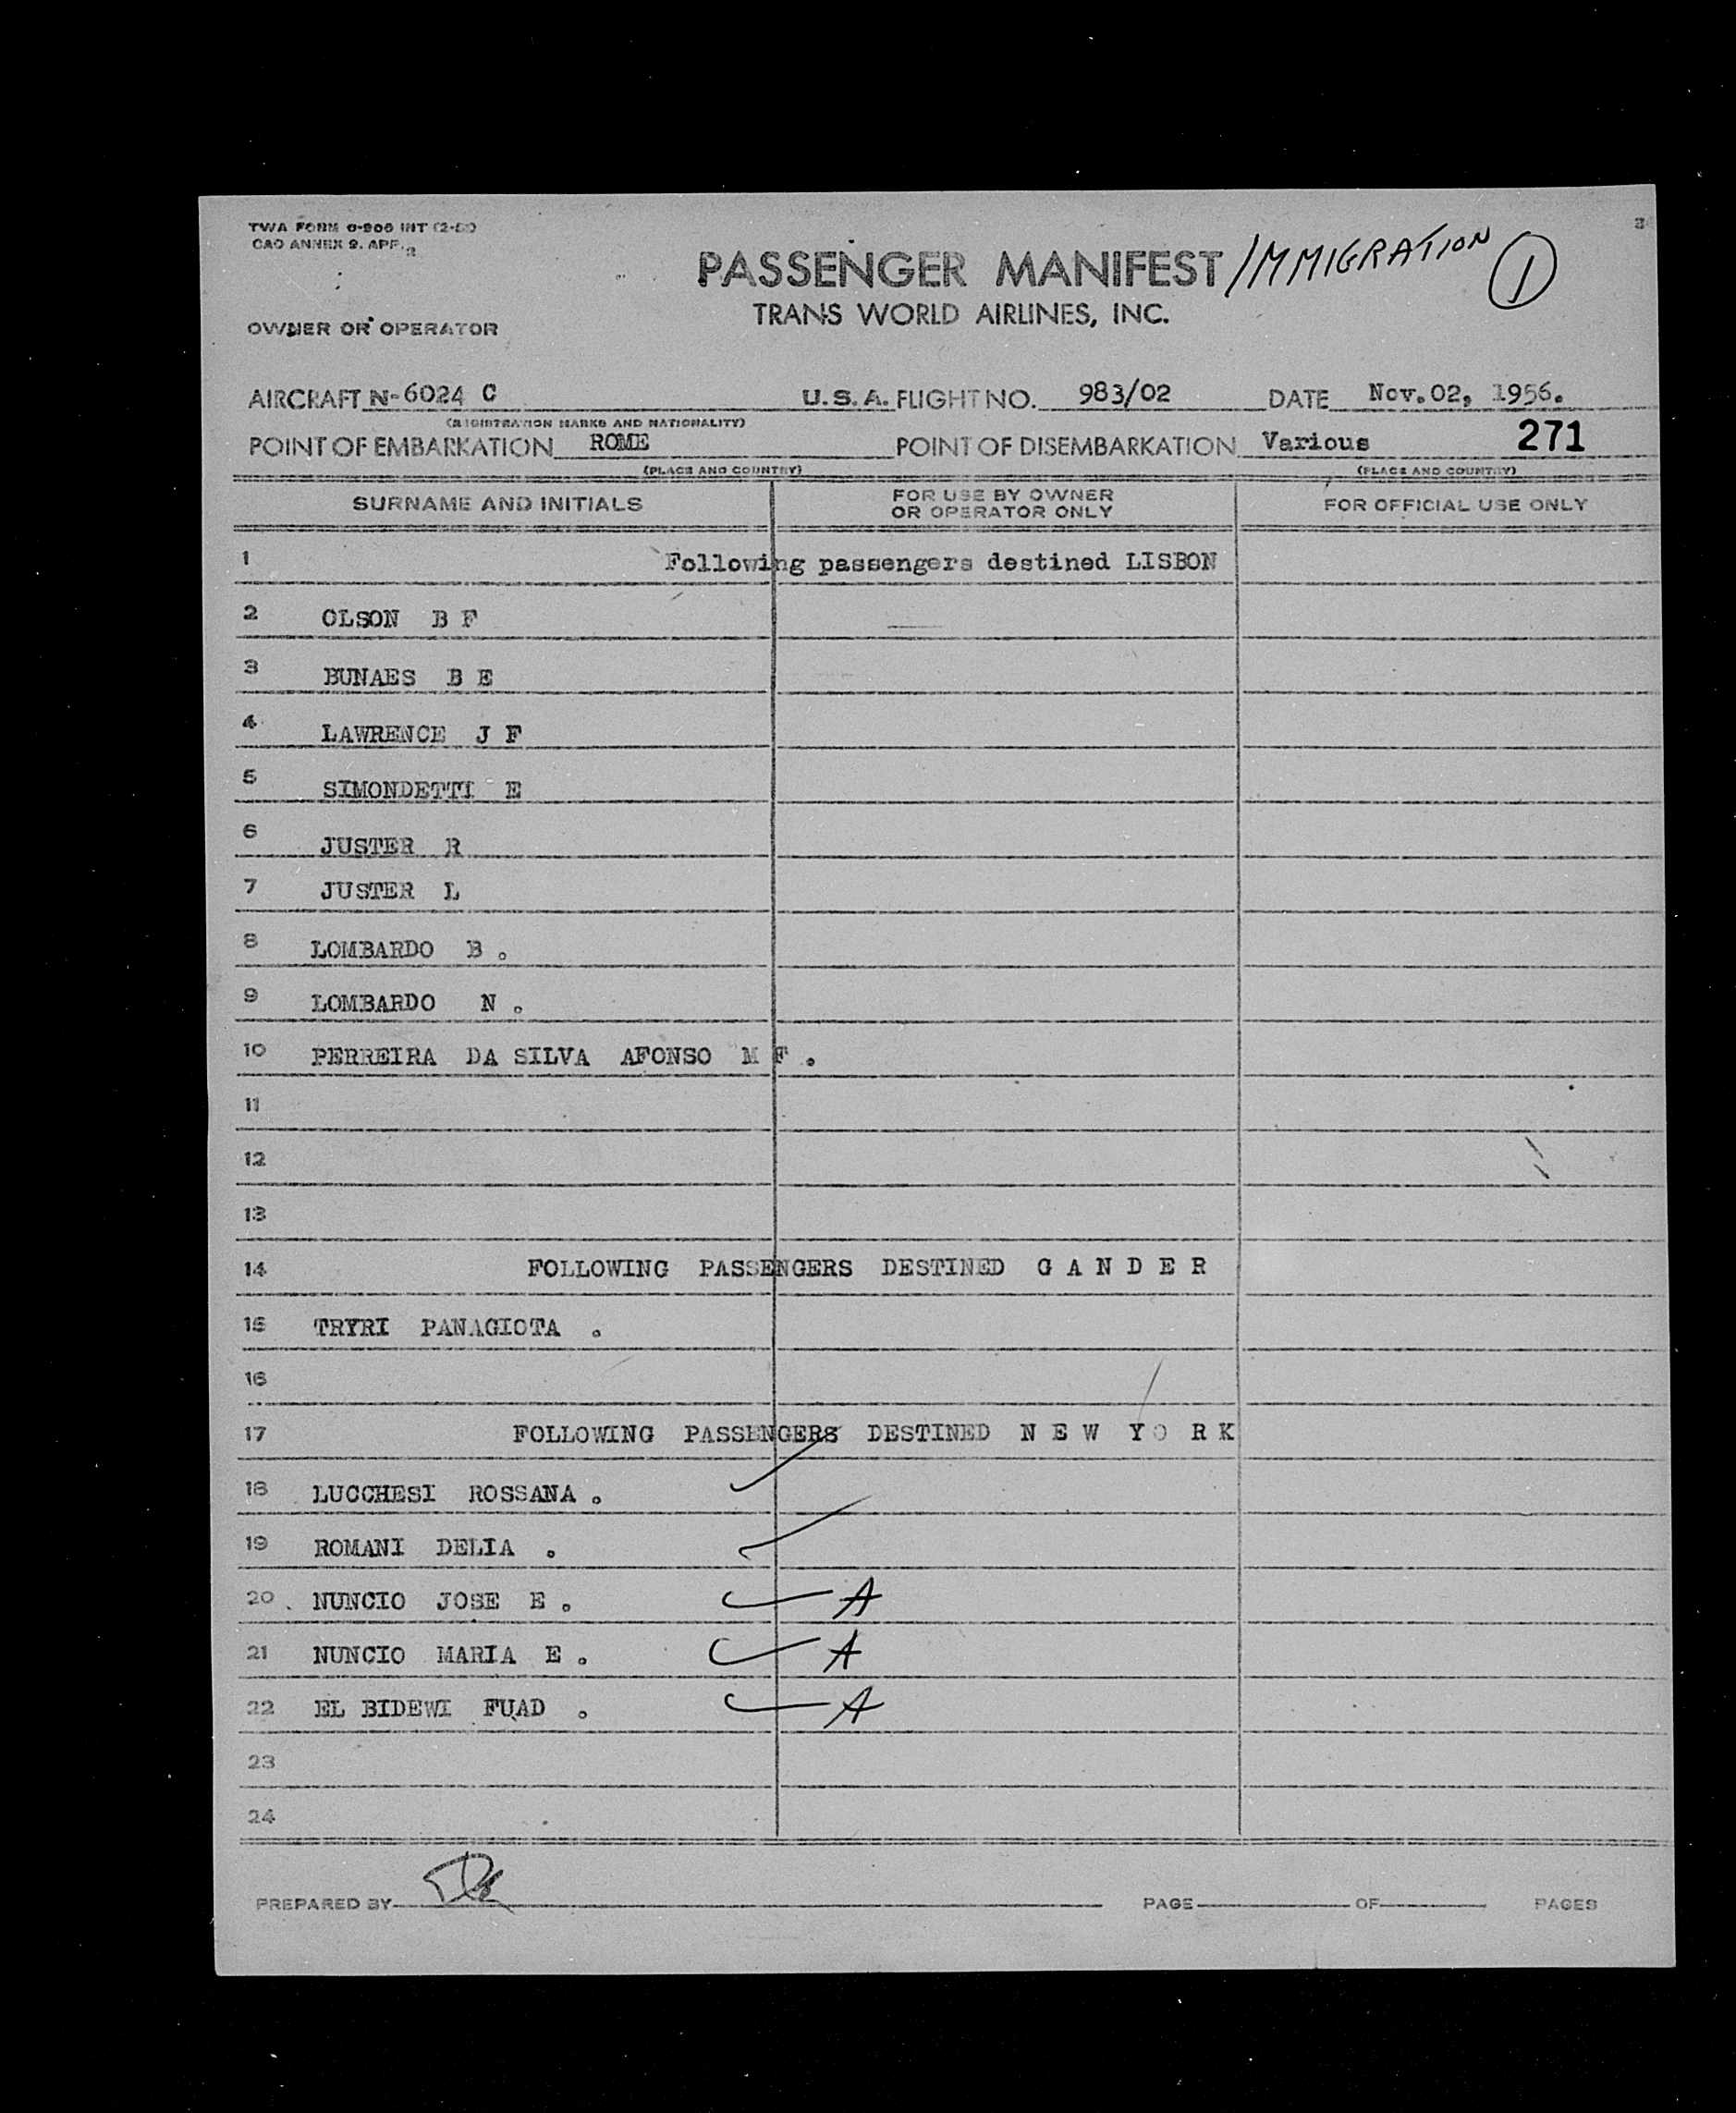 TWA FORM 0-906 INT
CAO ANNEX 9. APP.
PASSENGER MANIFEST / IMMIGRATION 1
TRANS WORLD AIRLINES, INC.
OWNER OR OPERATOR
AIRCRAFT N-6024 C U.S.A. FLIGHT NO. 983/02 DATE Nov.02, 1956.
(REGISTRATION MARKS AND NATIONALITY)
POINT OF EMBARKATION ROME POINT OF DISEMBARKATION Various 271
(PLACE AND COUNTRY) (PLACE AND COUNTRY)
SURNAME AND INITIALS FOR USE BY OWNER OR OPERATOR ONLY FOR OFFICIAL USE ONLY
1 Following passengers destined LISBON
2 OLSON B F
3 BUNAES B E
4 LAWRENCE J F
5 SIMONDETTI E
6 JUSTER R
7 JUSTER L
8 LOMBARDO B .
9 LOMBARDO N .
10 PERREIRA DA SILVA AFONSO M F .
11
12
13
14 FOLLOWING PASSENGERS DESTINED G A N D E R
15 TRYRI PANAGIOTA .
16
17 FOLLOWING PASSENGERS DESTINED N E W Y O R K
18 LUCCHESI ROSSANA .
19 ROMANI DELIA .
20 NUNCIO JOSE E . A
21 NUNCIO MARIA E . A
22 EL BIDEWI FUAD . A
23
24
PREPARED BY PAGE OF PAGES